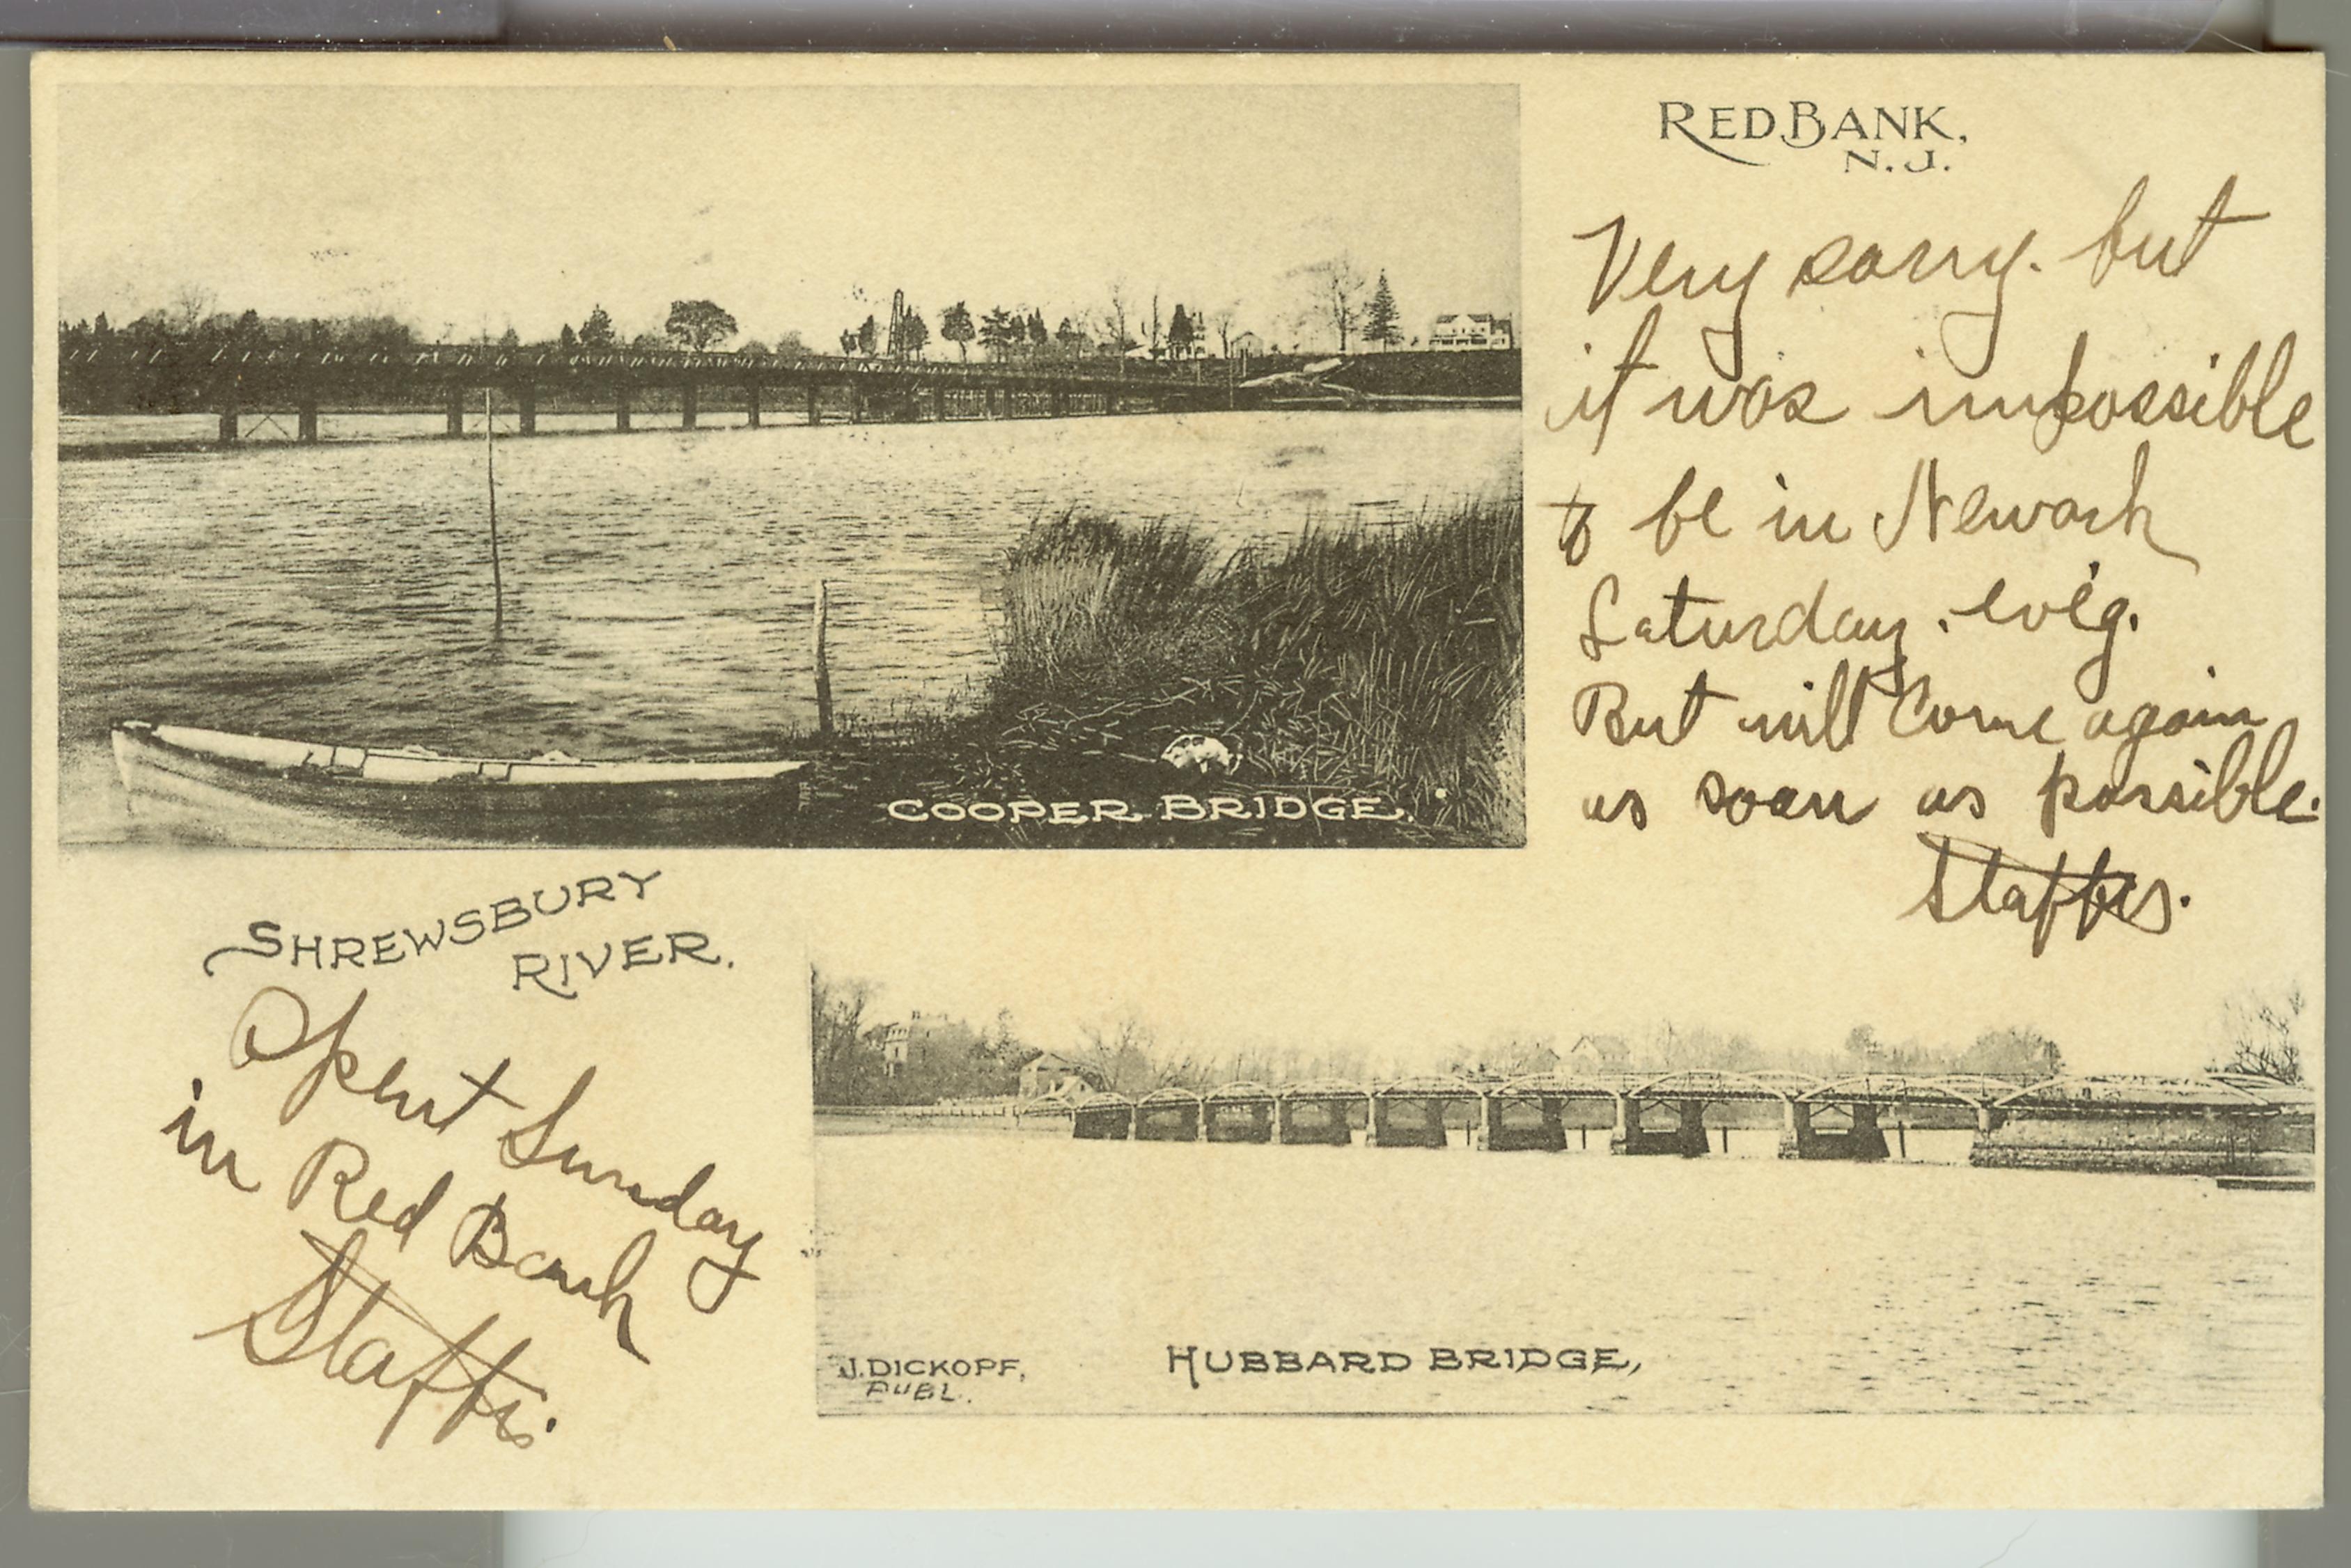 RED BANK,
N. J.
Very sorry. but
it was impossible
to be in Newark
Saturday. ev'g.
But will come again
as soon as possible.
COOPER BRIDGE.
SHREWSBURY
RIVER.
Spent Sunday
in Red Bank
J. DICKOPF,
PUBL.
HUBBARD BRIDGE,